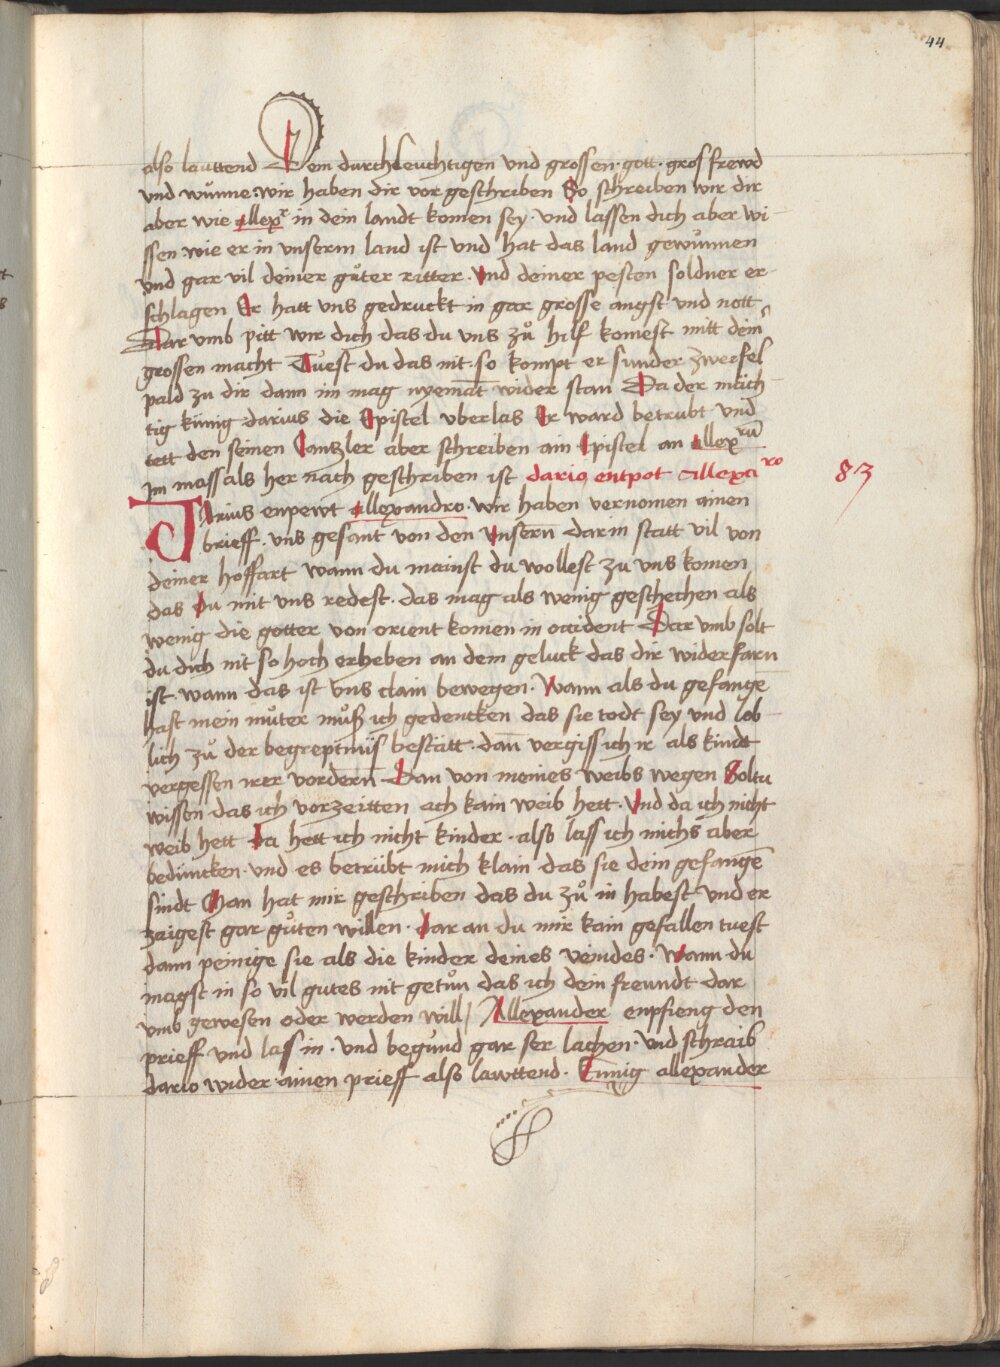 44
also lauttend Dem durchleuchtigen und grossen · gott · gros frewd
und wunne : wir haben dir vor geschriben So schreiben wir dir
aber wie allexr in dein landt komen sey · und lassen dich aber wi-
ssen : wie er in unserm land ist und hat das land gewunnen
und gar vil deiner gůter ritter · Und deiner pesten soldner er-
schlagen Er hatt uns gedruckt in gar grosse angst und nott
Dar umb pitt wir dich das du uns zů hilf komest mitt dein
grossen macht Tuest du das nit · so kompt er sunder zweifel
pald zu dir dann im mag nyemāt wider stan Da der mäch-
tig künig darius die Epistel uberlas Er ward betrubt und
tett den seinen Cantzler aber schreiben ain Epistel an allexrū
Im mass als her nach geschriben ist dario entpot allexāro
83
Darius enpewt allexandro · wir haben vernomen ainen
brieff · uns gesant von den Unsern̄ darin statt vil von
deiner hoffart wann du mainst du wollest zu uns komen
das Du mit uns redest · das mag als wenig geschechen als
wenig die gotter von orient komen in occident Dar umb solt
du dich nit so hoch erheben an dem geluck das dir widerfarn
ist · wann das ist uns clain bewegen · Wann als du gefangē
hast mein můter můß ich gedencken das sie todt sey und lob-
lich zů der begreptnüs bestätt · dan̄ vergiss ich ir als kindt
vergessen irer vordern̄ Dan von meines weibs wegen Soltu
wissen das ich vorzeitten ach kain weib hett · Und da ich nicht
weib hett Da hett ich nicht kinder · also lass ich michs aber
beduncken · und es betrübt mich klain das sie dein gefangē
sindt Man hat mir geschriben das du zů in habest und er
zaigest gar gůten willen · dar an du mir kain gefallen tuest
dann peinige sie als die kinder deines veindes · Wann du
magst in so vil gutes nit getůn das ich dein freundt dar
umb gewesen oder werden will / Allexander enpfieng den
prieff und las in · und begund gar ser lachen · Und schraib
dario wider ainen prieff also lawttend · Kunig allexander